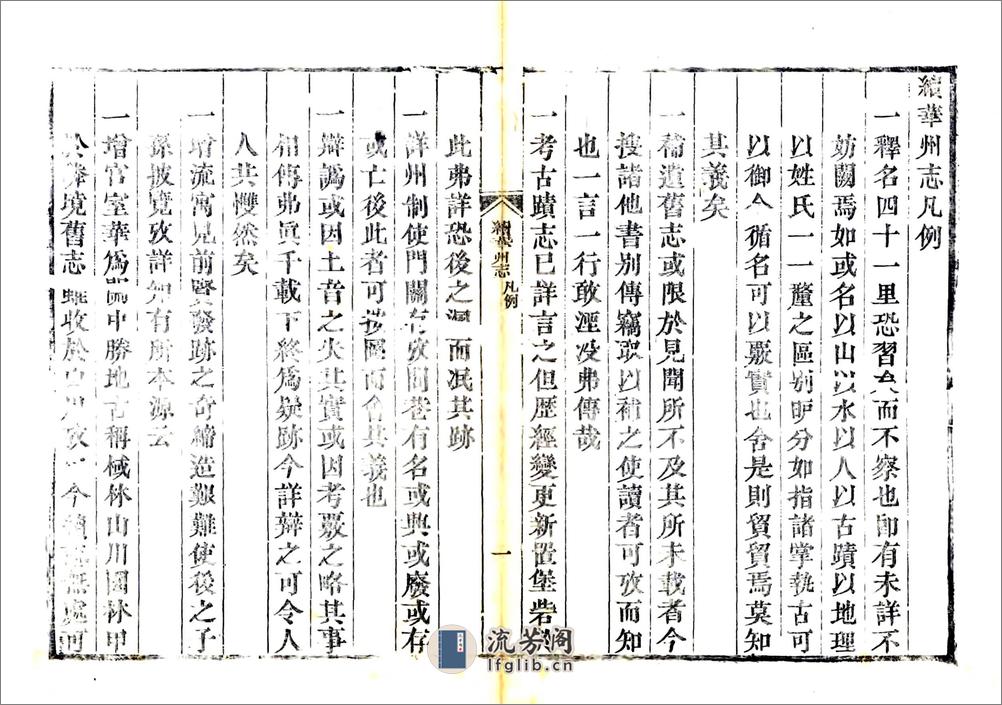 續華州志凡例
一釋名四十一里恐習矣而不察也卽有未詳不
妨闕焉如或名以山以水以人以古蹟以地理
以姓氏一一釐之區別昈分如指諸掌執古可
以御今循名可以覈實也舍是則貿貿焉莫知
其義矣
一補遺舊志或限於見聞所不及其所未載者今
搜諸他書別傳竊取以補之使讀者可攷而知
也一言一行敢湮没弗傳哉
一考古蹟志已詳言之但歷經變更新置堡砦
此弗詳恐後之 而泯其跡
續華州志 凡例
一
一詳州制使門關有攷閭巷有名或興或廢或存
或亡後此者可按圖而會其義也
一辯譌或因土音之失其實或因考覈之略其事
相傳弗眞千載下終爲疑跡今詳辯之可令人
人共憬然矣
一增流寓見前賢發跡之奇締造艱難使後之子
孫披覽攷詳知有所本源云
一增官室華爲關中勝地古稱棫林山川園林甲
於隣境舊志雖收於 今 無處可
流芳阁
lfglib.cn